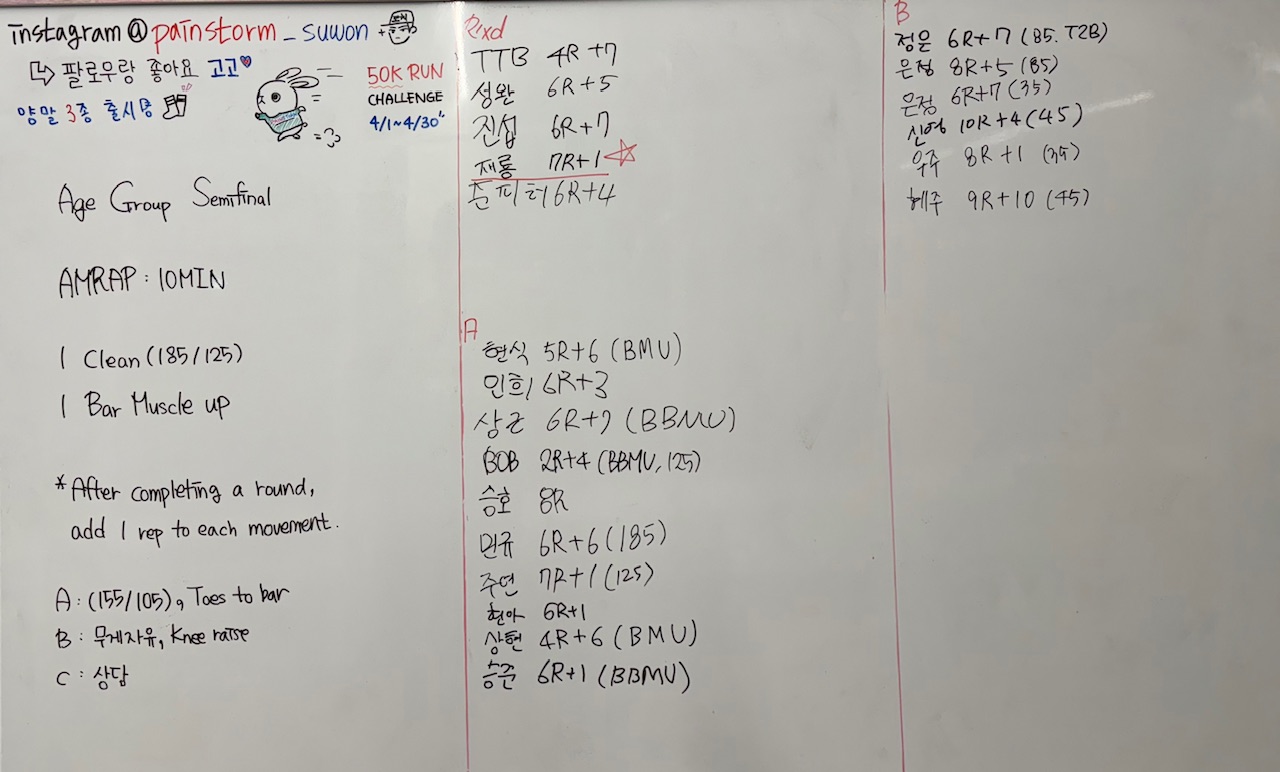 instagram @ painstorm _ suwon
팔로우랑 좋아요 고고
양말 3종 출시중
50K RUN
CHALLENGE
4/1~4/30"
Age Group Semifinal
AMRAP : 10MIN
1 Clean (185/125)
1 Bar Muscle up
*After completing a round,
add 1 rep to each movement.
A : (155/105), Toes to bar
B : 무게자유, Knee raise
C : 상담
Rxd
TTB 4R+7
성완 6R+5
진섭 6R+7
재룡 7R+1
존피터 6R+4
A
현식 5R+6 (BMU)
민희 6R+3
상근 6R+7 (BBMU)
BOB 2R+4 (BBMU, 125)
승호 8R
민규 6R+6 (185)
주연 7R+1 (125)
현아 6R+1
상현 4R+6 (BMU)
승준 6R+1 (BBMU)
B
정은 6R+7 (85. T2B)
은정 8R+5 (85)
은정 6R+7 (35)
신영 10R+4 (45)
우주 8R+1 (35)
혜주 9R+10 (45)